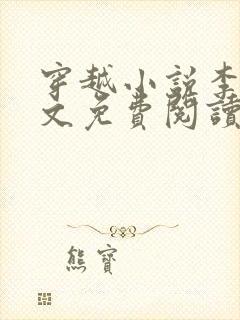 穿越小说李
文免費閱讀
熊寶